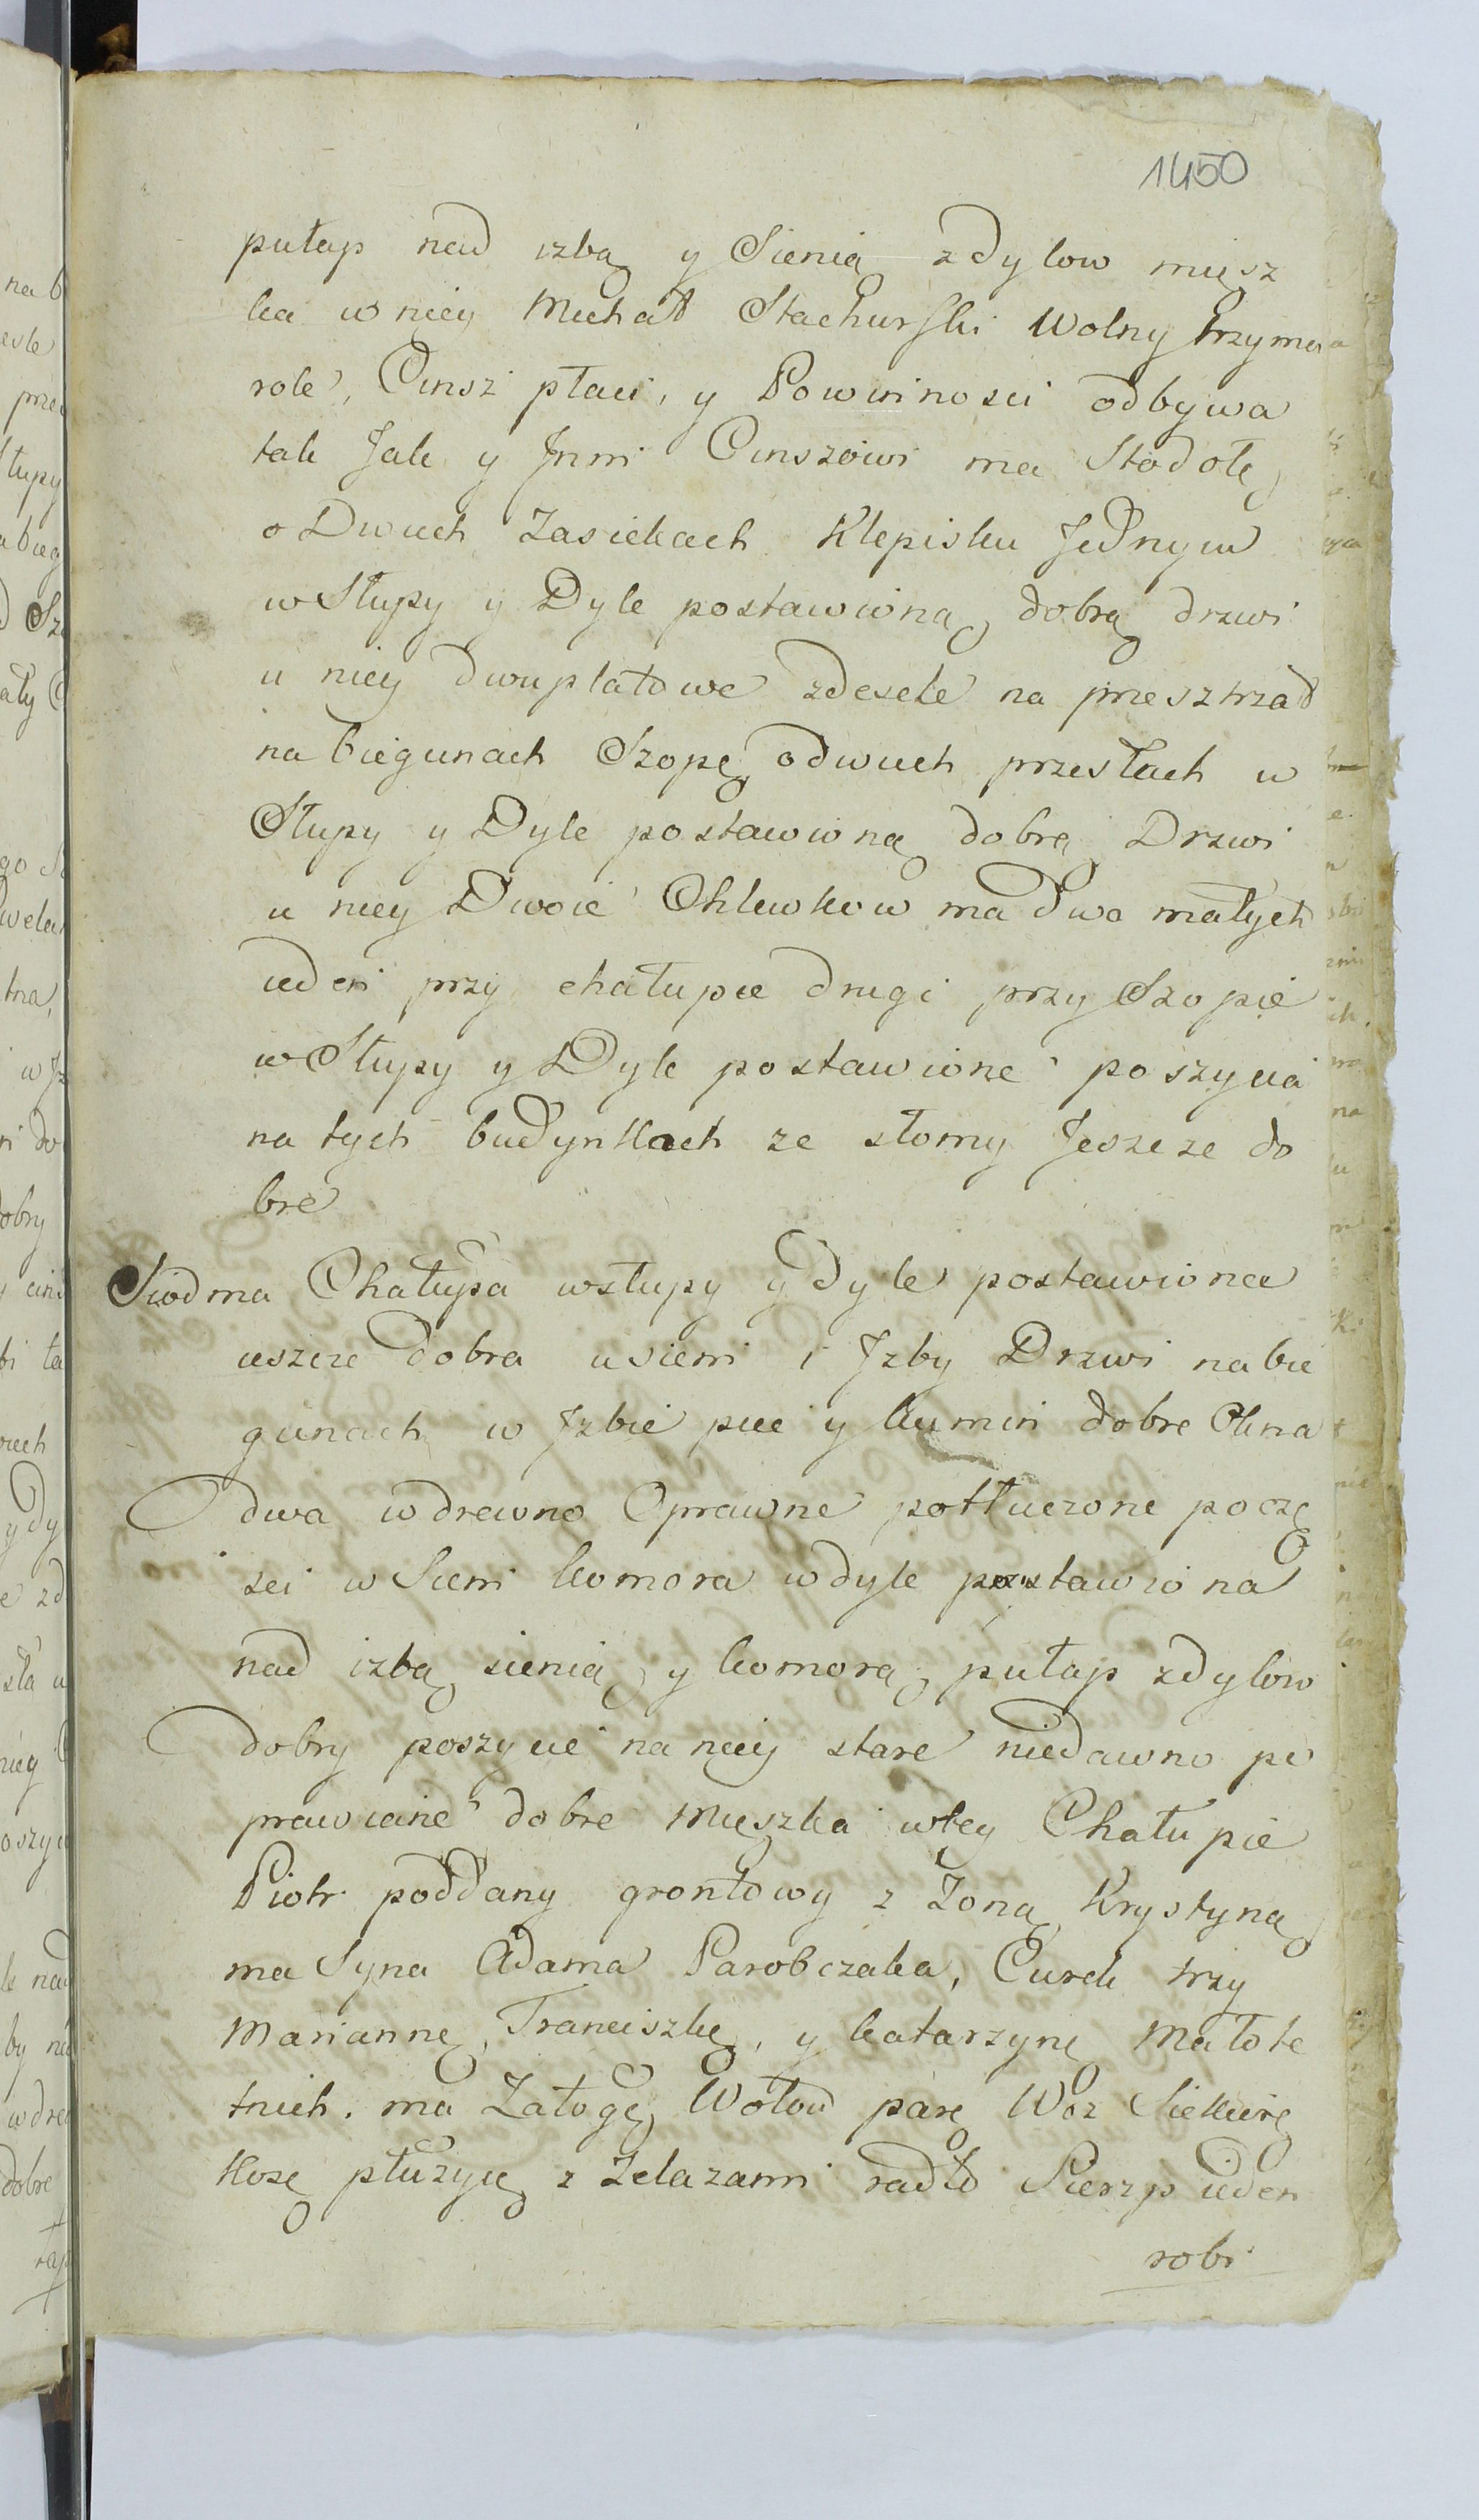 1450
pułap nad izbą y Sienią zdylow miesz
ka w niey Michał Stachurski Wolny trzyma
role, Cinsz płaci, y Powinnosci odbywa
tak Jak y Jnni Cinszowi ma Stodołę
o Dwuch Zasiekach Klepisku Jednym
w Słupy y Dyle postawioną dobrą drzwi
u niey dwuplatowe zdesek na przesztrzał
na biegunach Szopę odwuch przesłach w
Słupy y Dyle postawioną dobrą Drzwi
u niey Dwoie Chlewkow ma dwa małych
ieden przy chałupie drugi przy Szopie
w Słupy y Dyle postawione poszycia
na tych budynkach ze słomy Jeszcze do
bre
Siodma Chałupa wsłupy y dyle postawiona
ieszcze dobra usieni i Jzby Drzwi nabie
gunach w Jzbie piec y kumin dobre Okna
dwa wdrewno Oprawne potłuczone poczę
sci w Sieni komora wdyle postawiona
nad izbą sienią y komorą pułap zdylow
dobry poszycie na niey stare niedawno po
prawiane dobre Mieszka wtey Chałupie
Piotr poddany grontowy z Zoną Krystyną
ma Syna Adama Parobczaka, Curek trzy
Mariannę, Franciszkę, y katarzynę Małole
tnich. ma Załogę Wołow parę Woz Siekierę
Kosę płużycę z Zelazami radło Sierzp ieden
robi